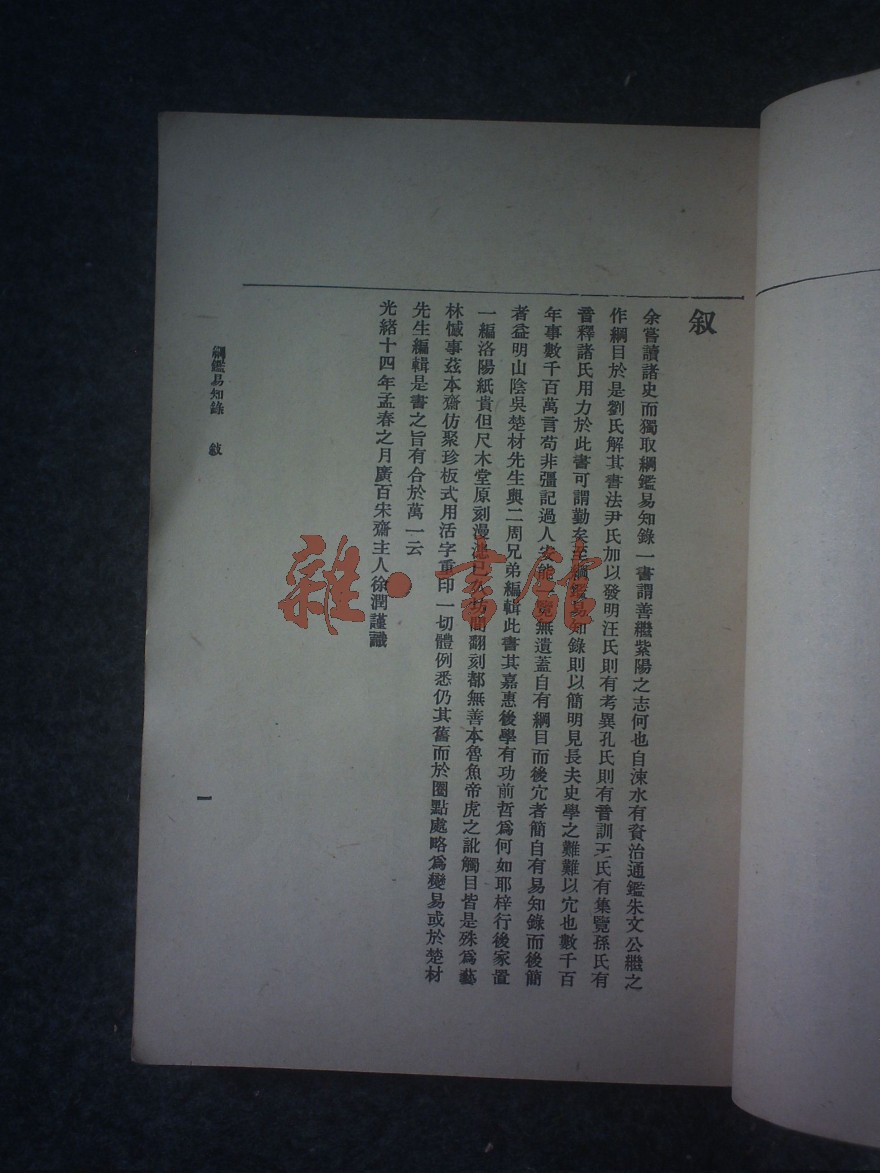 叙
余嘗讀諸史而獨取綱鑑易知錄一書謂善繼紫陽之志何也自涑水有資治通鑑朱文公繼之
作綱目於是劉氏解其書法尹氏加以發明汪氏則有考異孔氏則有音訓王氏有集覽孫氏有
音釋諸氏用力於此書可謂勤矣至綱鑑易知錄則以簡明見長夫史學之難難以宂也數千百
年事數千百萬言苟非彊記過人安能一覽無遺蓋自有綱目而後宂者簡自有易知錄而後簡
者益明山陰吳楚材先生與二周兄弟編輯此書其嘉惠後學有功前哲爲何如耶梓行後家置
一編洛陽紙貴但尺木堂原刻漫漶已久坊間翻刻都無善本魯魚帝虎之訛觸目皆是殊爲藝
林憾事茲本齋仿聚珍板式用活字重印一切體例悉仍其舊而於圈點處略爲變易或於楚材
先生編輯是書之旨有合於萬一云
光緒十四年孟春之月廣百宋齋主人徐潤謹識
綱鑑易知錄 敍
一
雜·書館